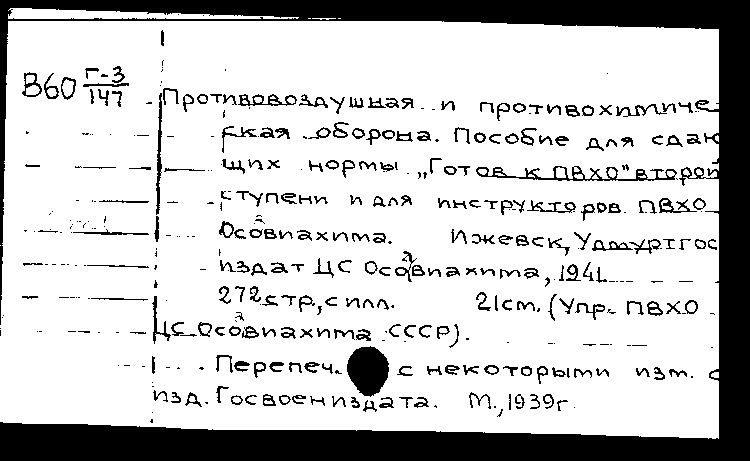 В60 Г-3
147
Противовоздушная и противохимиче
ская оборона. Пособие для сдаю
щих нормы „Готов к ПВХО" второй
ступени и для инструкторов ПВХО
Осоавиахима. Ижевск, Удмуртгос
издат ЦС Осоавиахима, 1941
272 стр., с илл. 21 cm. (Упр. ПВХО
ЦС Осоавиахима СССР).
Перепеч. с некоторыми изм. с
изд. Госвоениздата. М., 1939г.